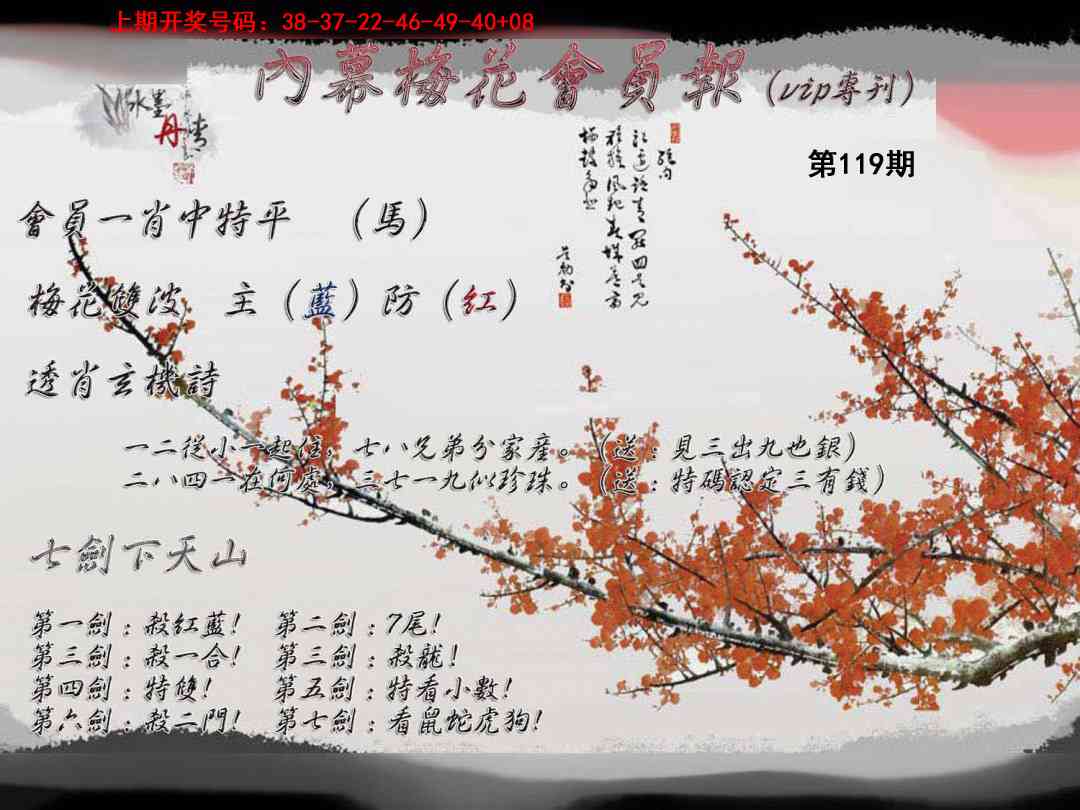 上期开奖号码：38-37-22-46-49-40+08
內幕梅花會員報（vip專刊）
水墨
丹情
第119期
會員一肖中特平　（馬）
梅花雙波　主（藍）防（紅）
透肖玄機詩
一二從小一起住，七八兄弟分家産。（送：見三出九也銀）
二八四一在何處，三七一九似珍珠。（送：特碼認定三有錢）
七劍下天山
第一劍：殺紅藍！ 第二劍：7尾！
第三劍：殺一合！ 第三劍：殺龍！
第四劍：特雙！ 第五劍：特看小數！
第六劍：殺二門！ 第七劍：看鼠蛇虎狗！